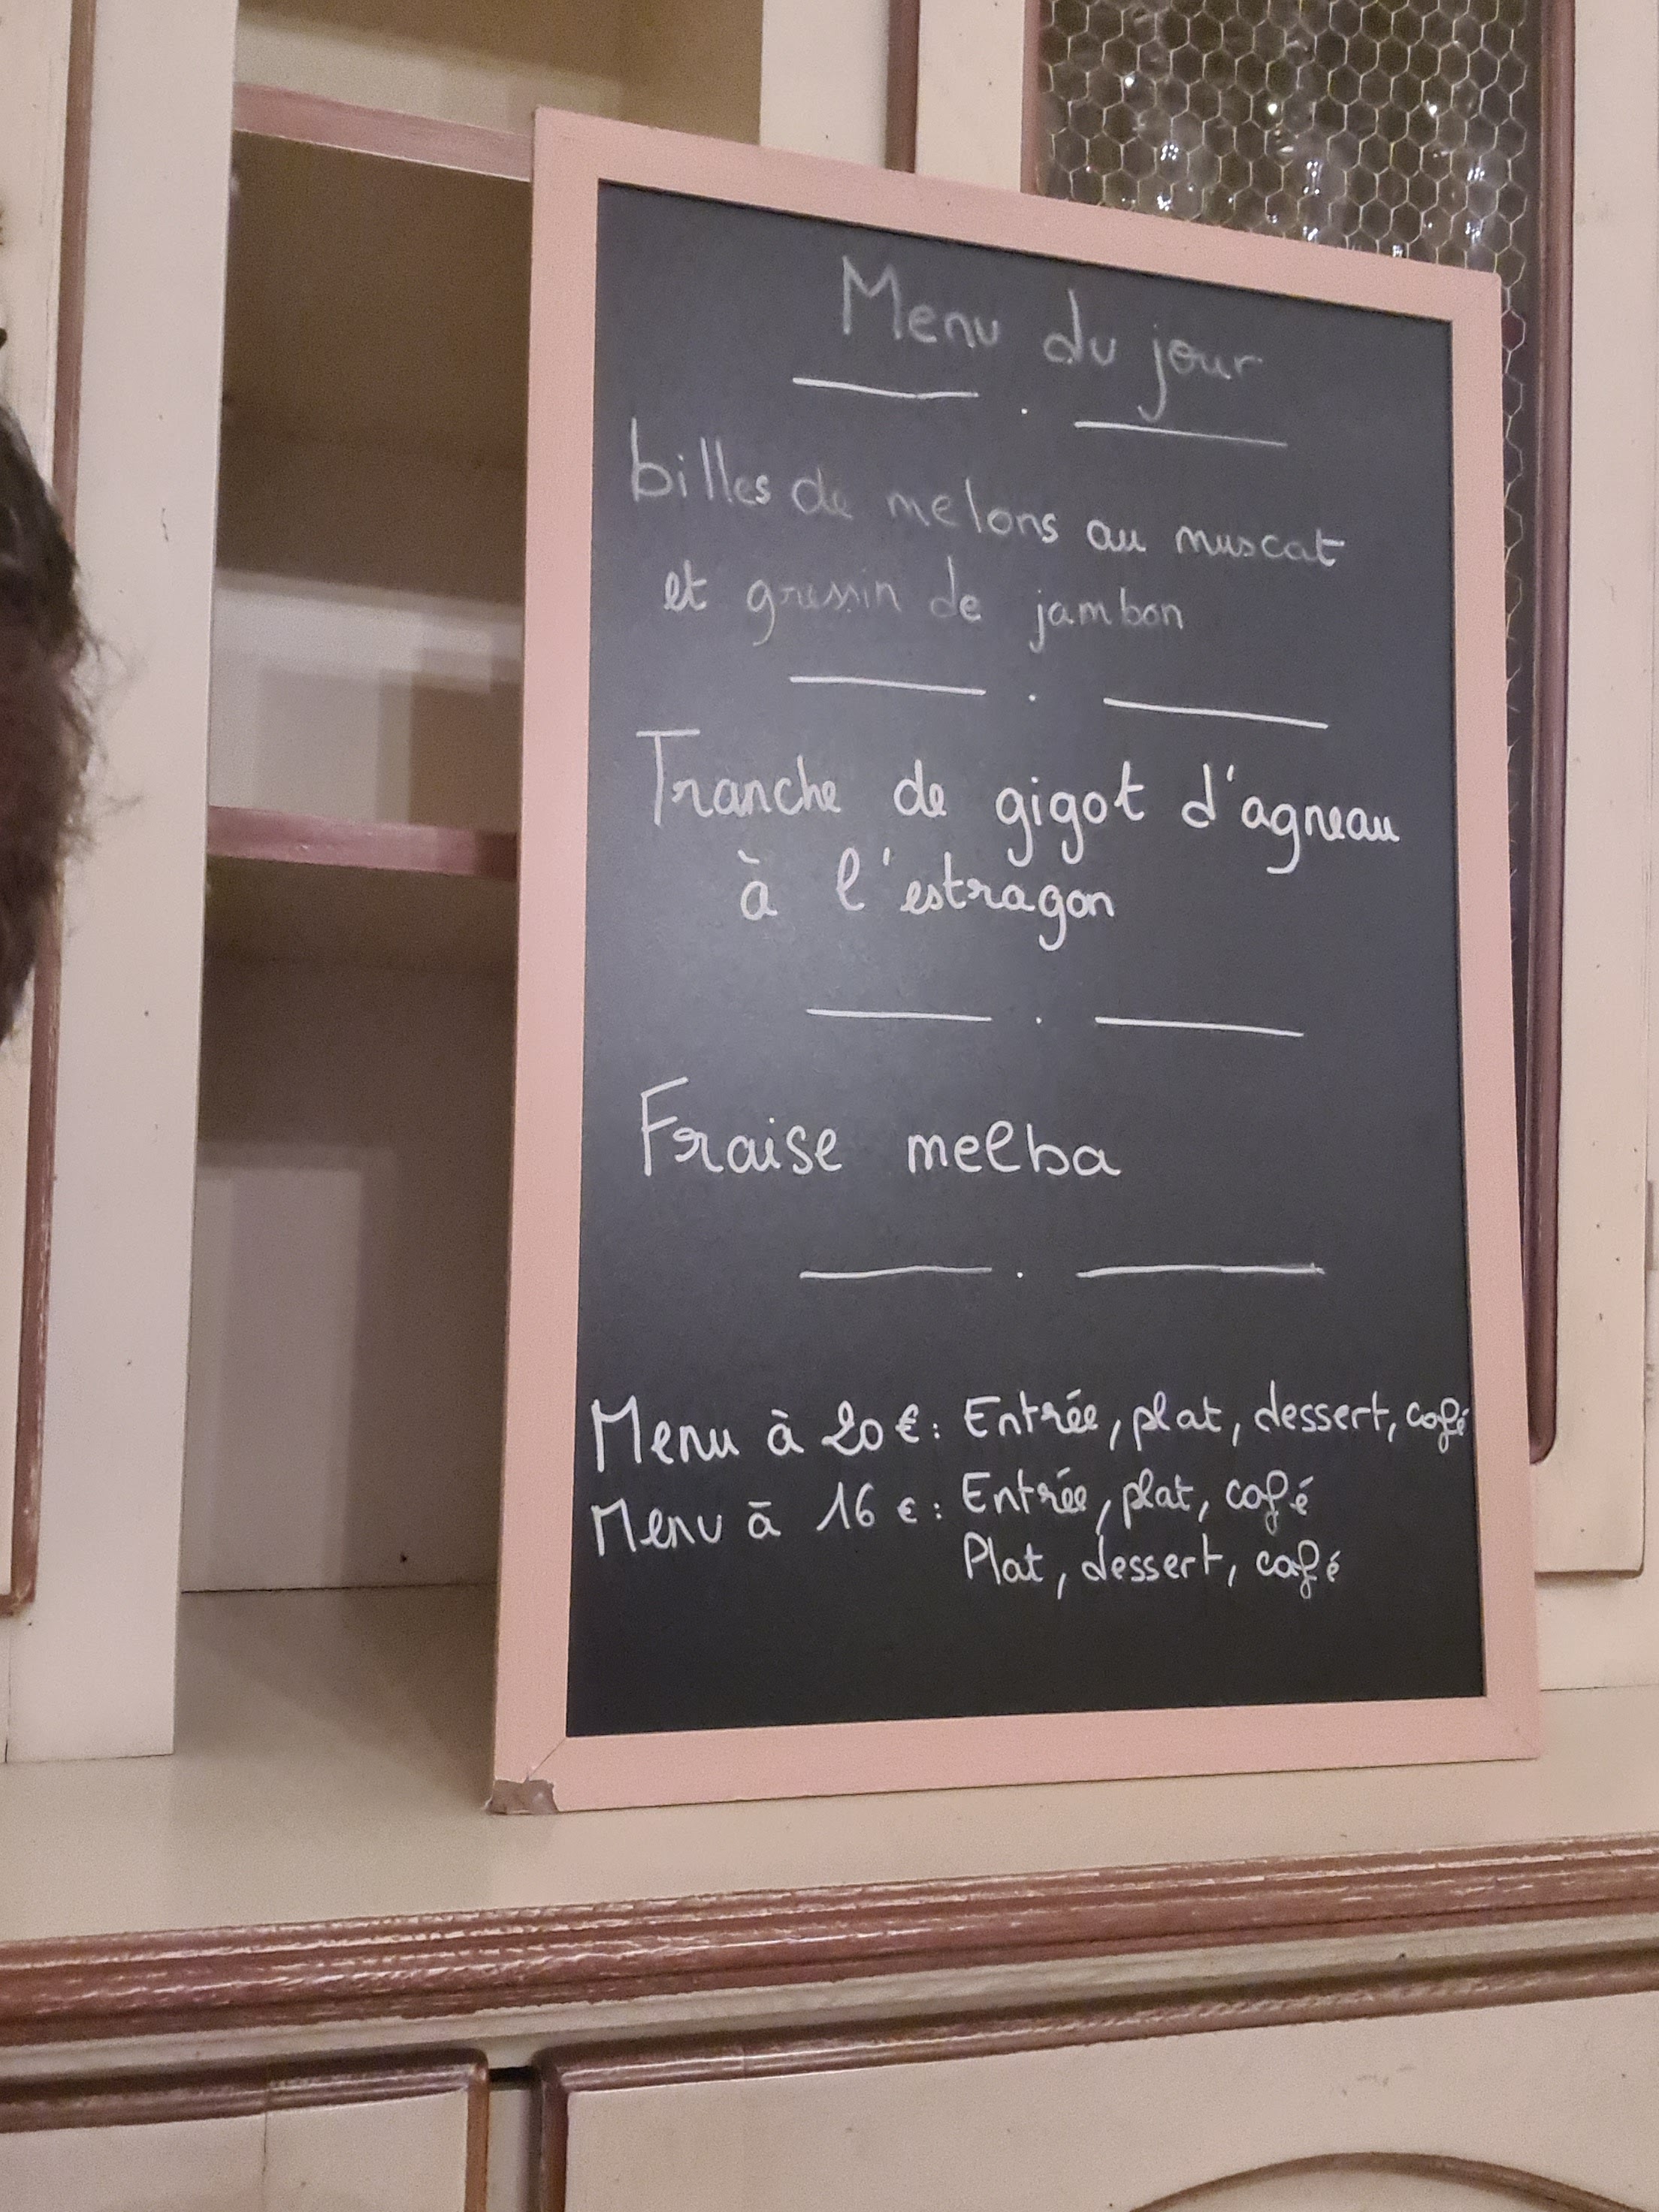 Menu du jour
billes de melons au muscat
et gressin de jambon
Tranche de gigot d'agneau
à l'estragon
Fraise melba
Menu à 20 €: Entrée, plat, dessert, café
Menu à 16 €: Entrée, plat, café
Plat, dessert, café